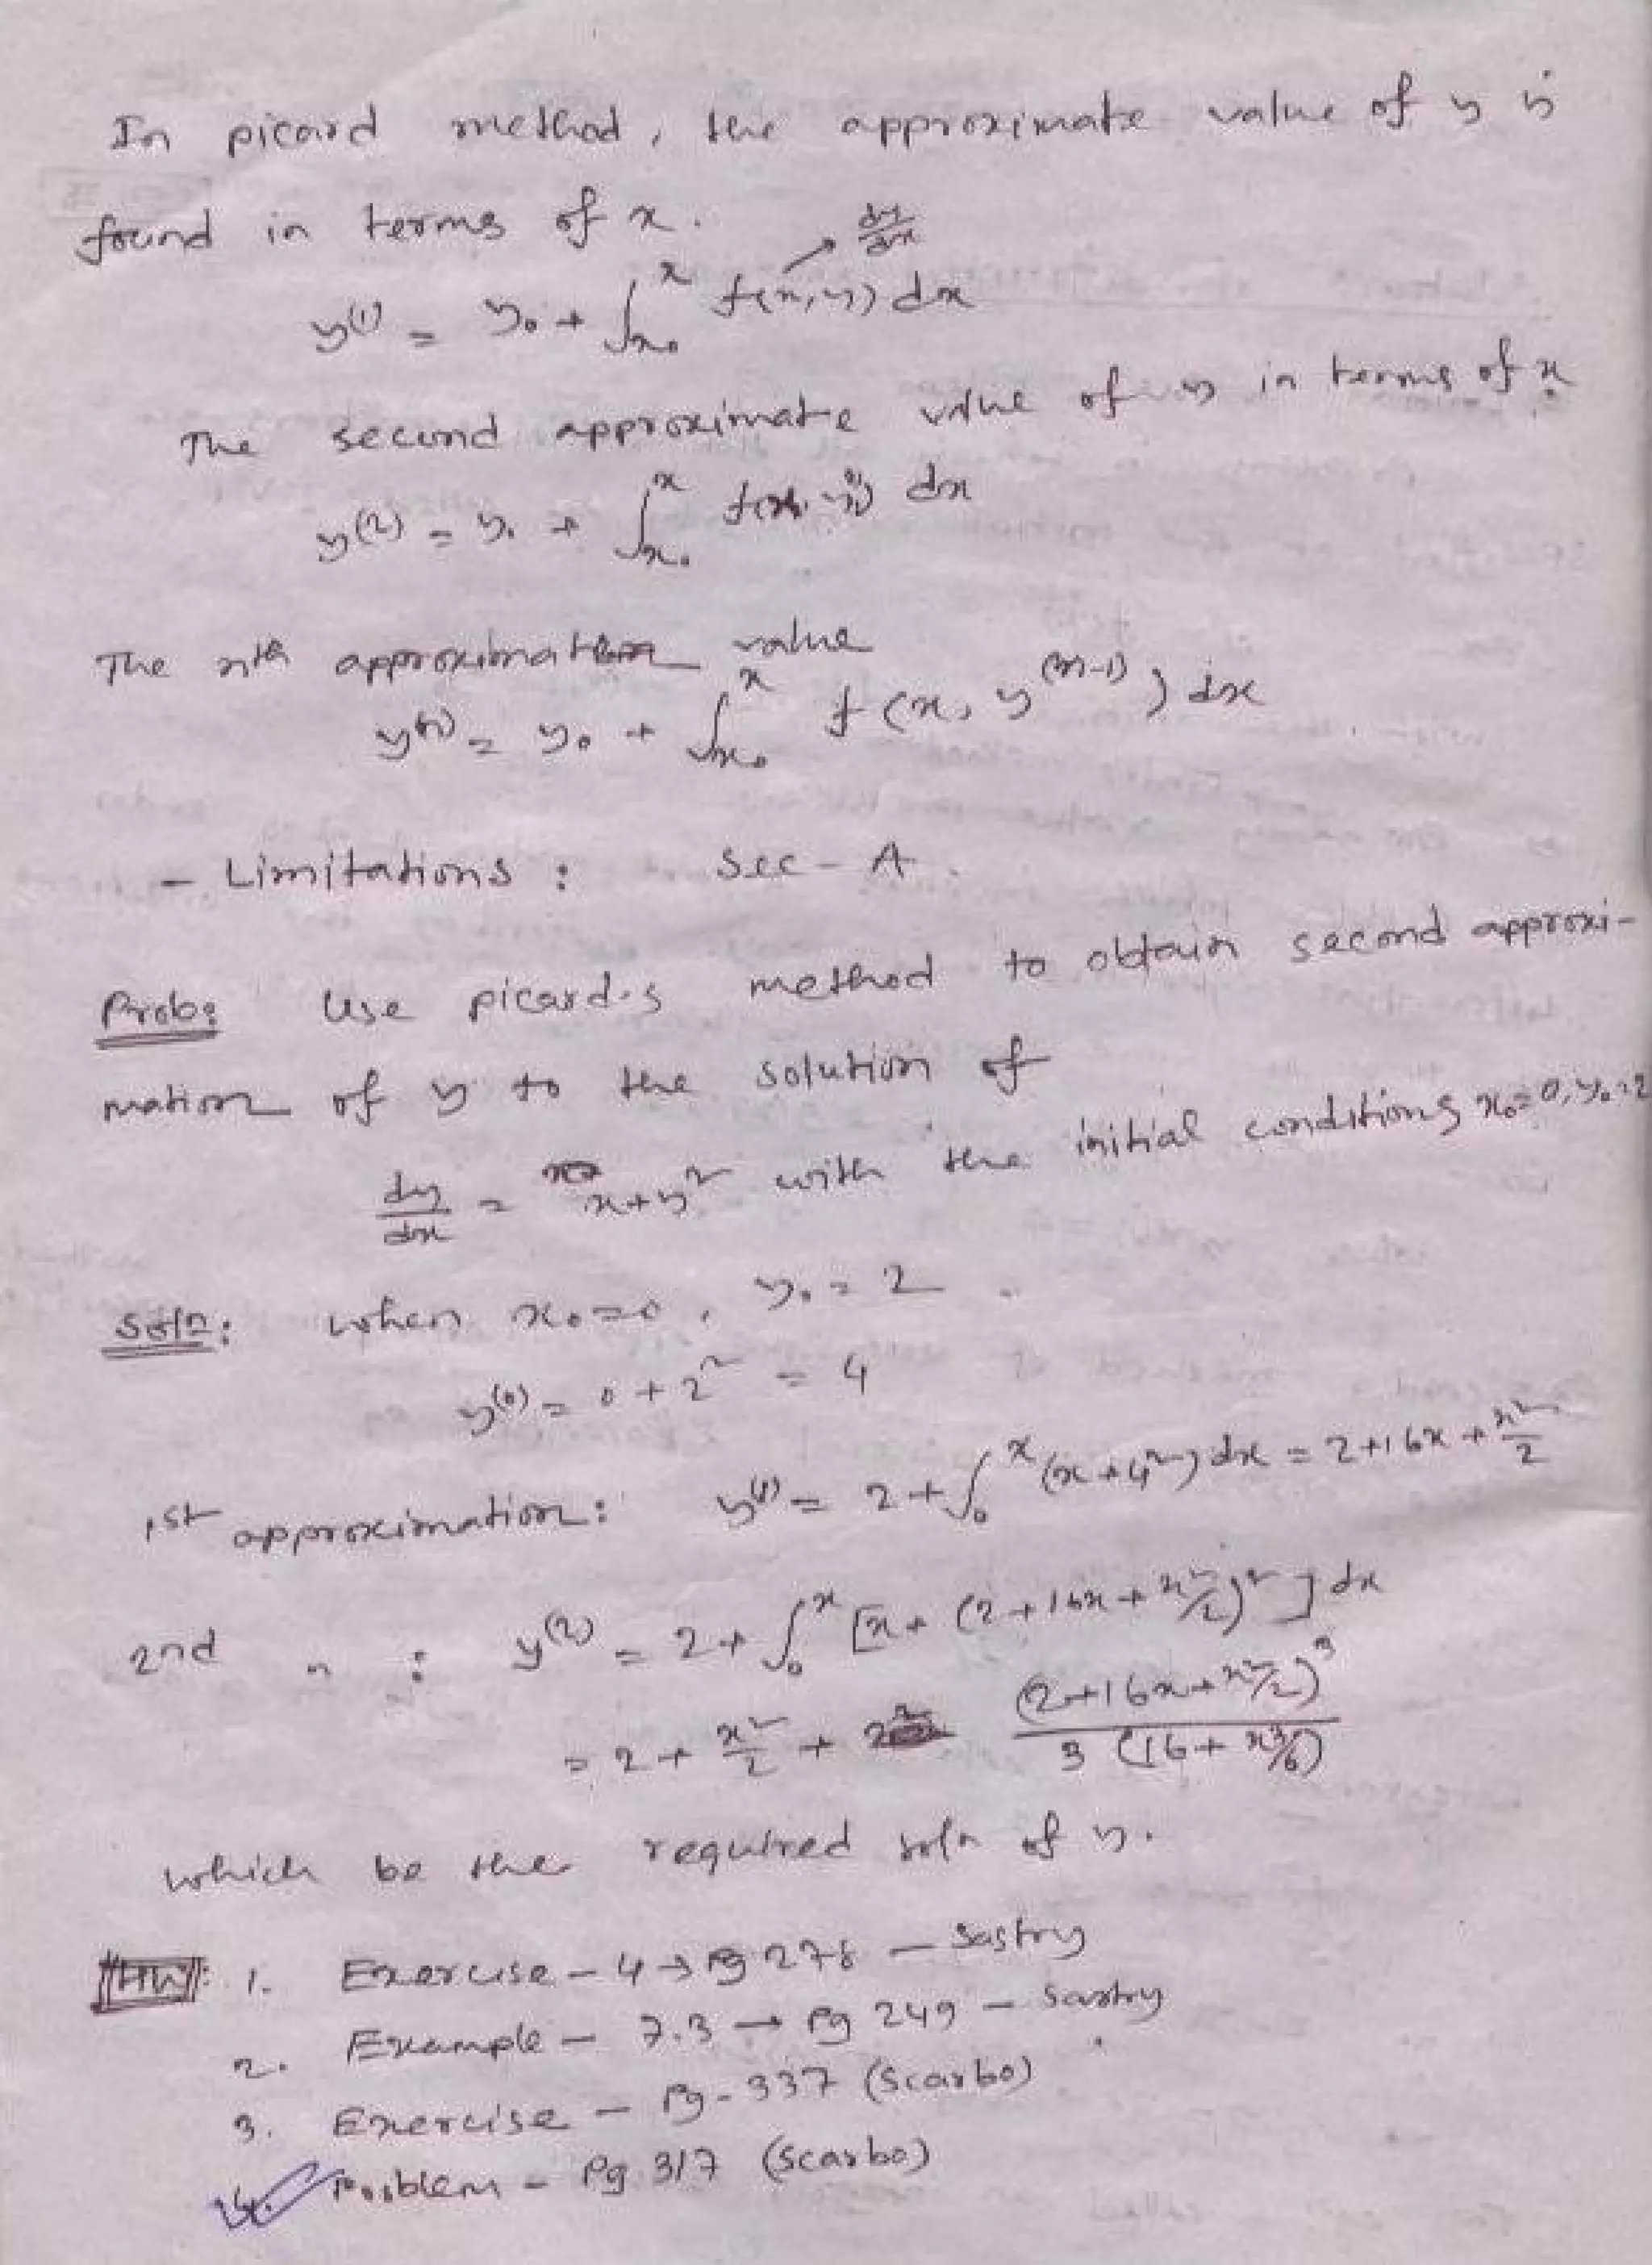 In picard method, the approximate value of y is
found in terms of x.
dy/dx
y^(1) = y₀ + ∫_{x₀}^{x} f(x,y) dx
The second approximate value of y in terms of x
y^(2) = y₀ + ∫_{x₀}^{x} f(x, y^(1)) dx
The nth approximation value
y^(n) = y₀ + ∫_{x₀}^{x} f(x, y^(n-1)) dx
- Limitations : Sec - A.
Prob: Use picard's method to obtain second approxi-
mation of y to the solution of
dy/dx = x+y² with the initial conditions x₀=0, y₀=2
Soln: when x₀=0, y₀=2.
y^(0) = 0+2² = 4
1st approximation: y^(1) = 2+∫_0^x (x+4²)dx = 2+16x+x²/2
2nd " : y^(2) = 2+∫_0^x [x+(2+16x+x²/2)²]dx
= 2+x²/2 + (2+16x+x²/2)³/3(16+x³/6)
which be the required soln of y.
HW: 1. Exercise - 4 → Pg 278 - Sastry
2. Example - 7.3 → Pg 249 - Sastry
3. Exercise - Pg - 337 (Scarbo)
4. Problem - Pg 317 (Scarbo)